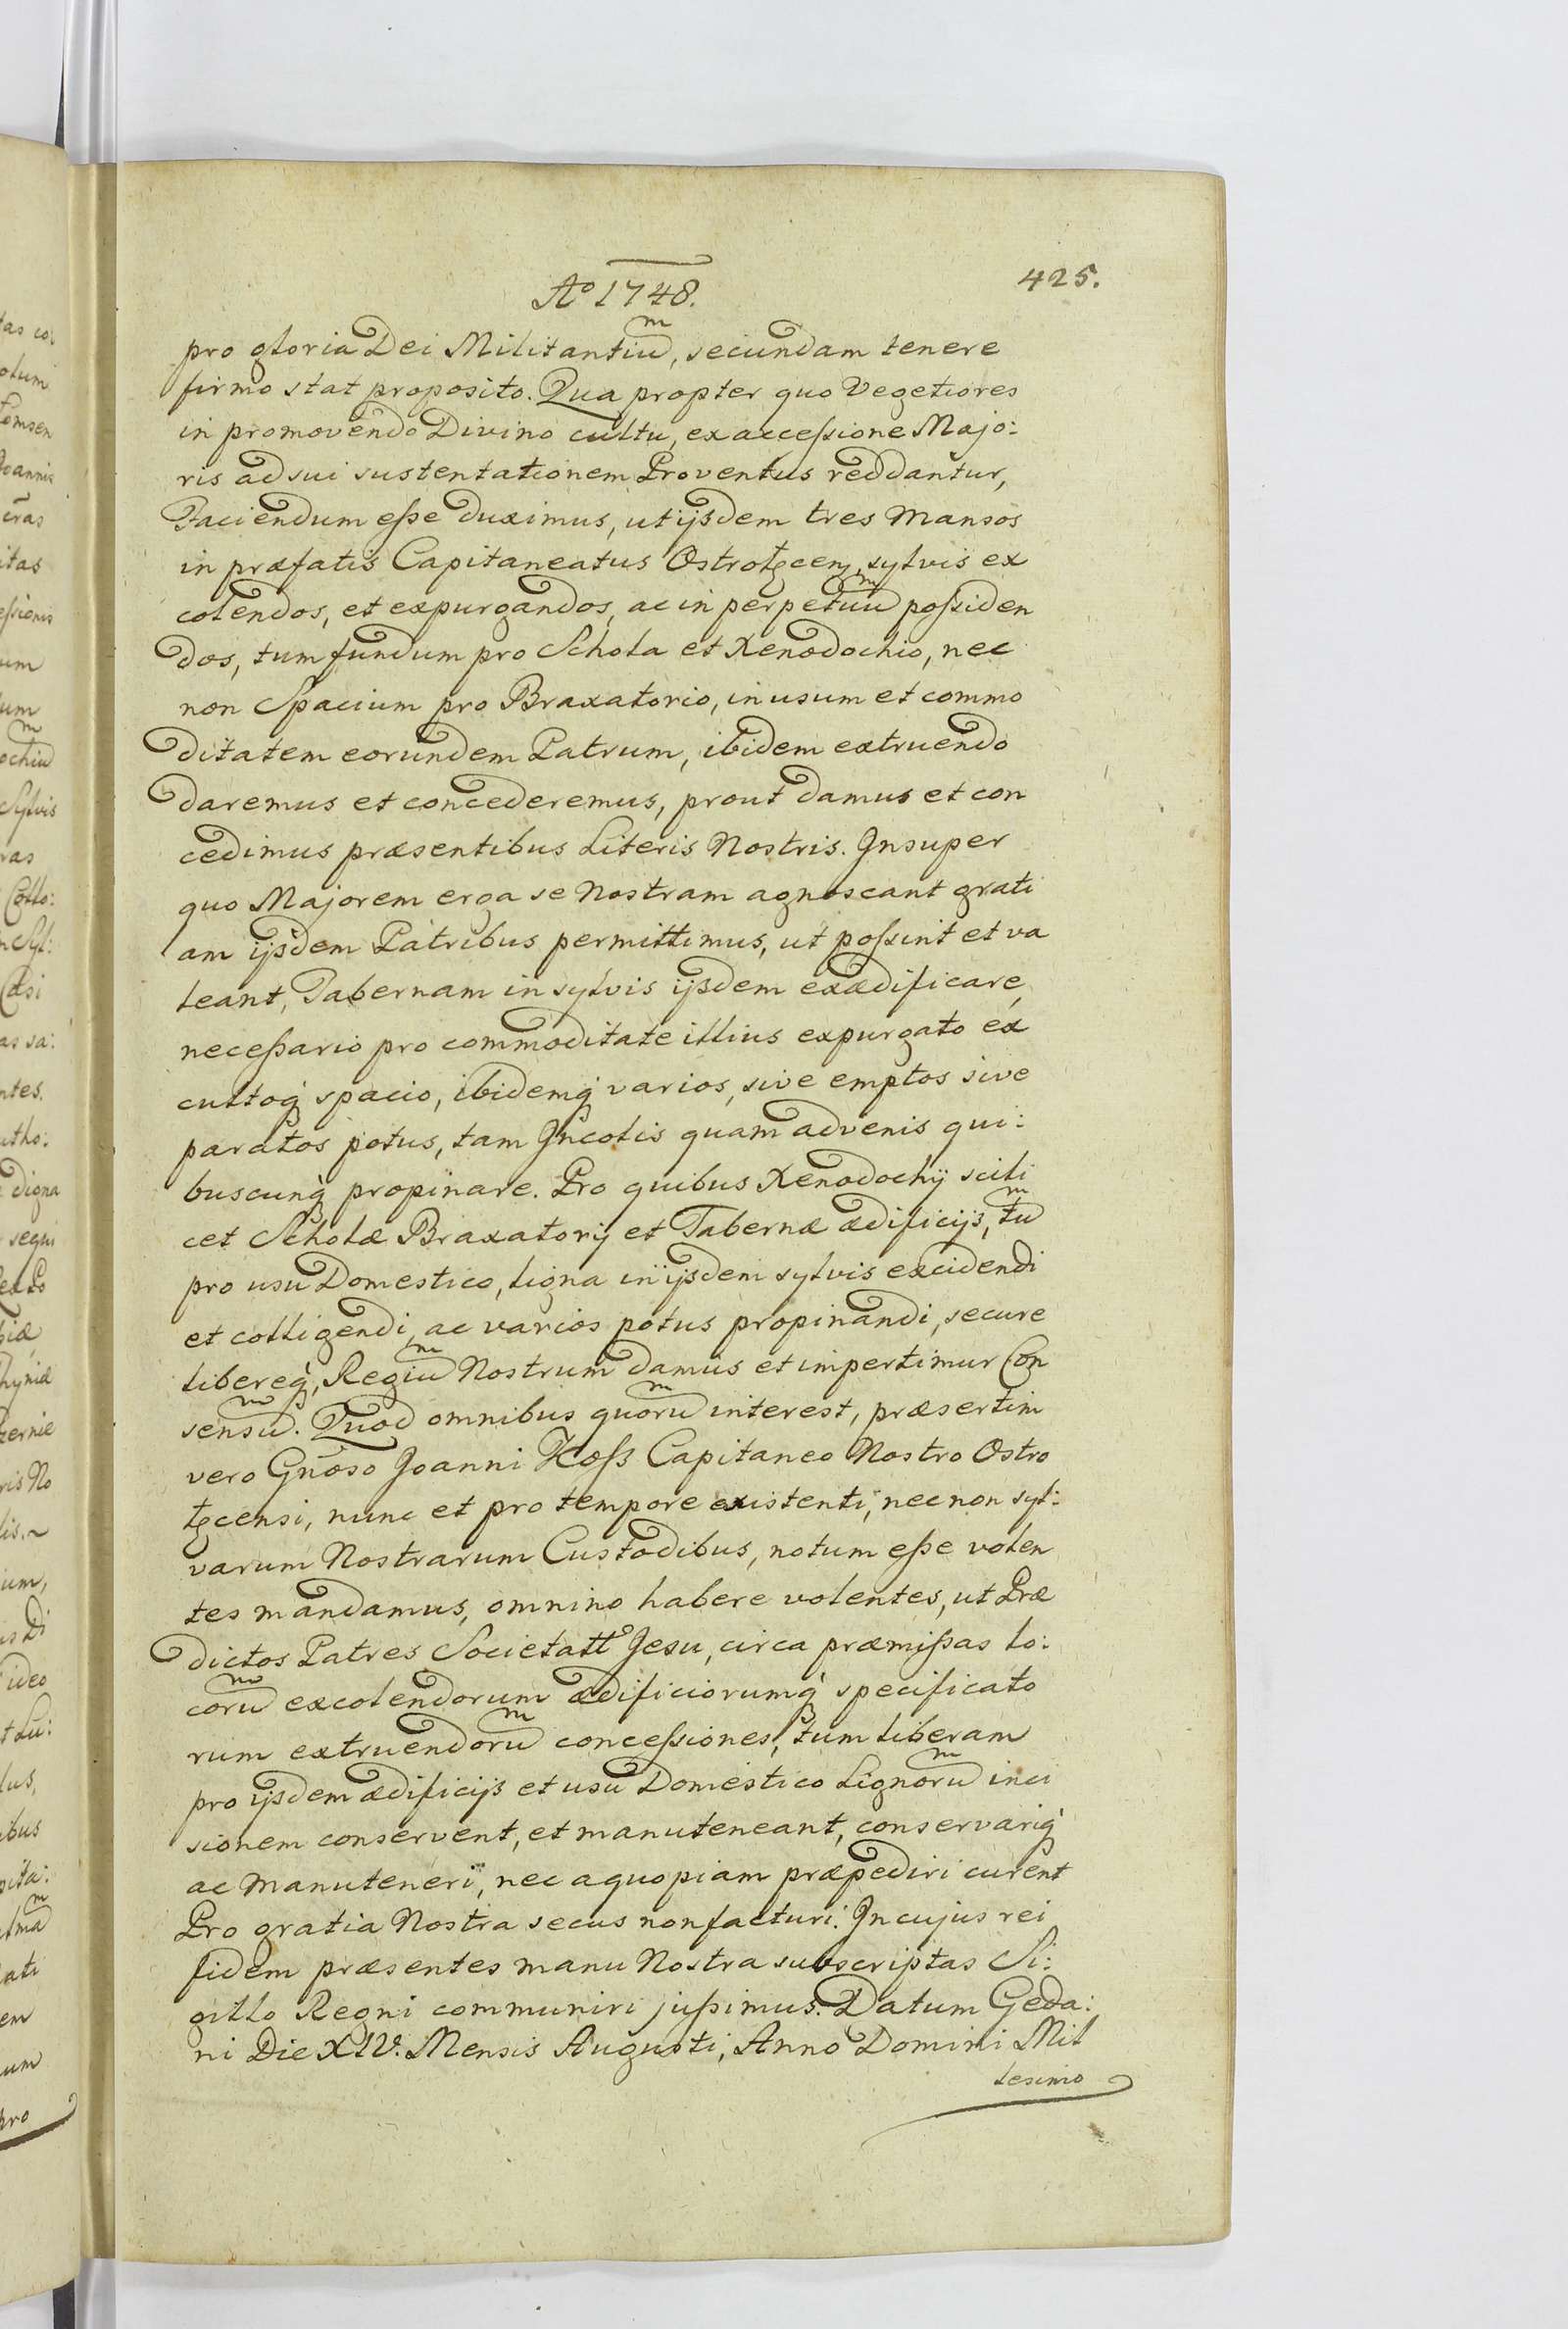 425.
Aº 1748.
pro gloria Dei Militantiūm, secundam tenere
firmo stat proposito. Qua propter quo Vegetiores
in promovendo Divino cultu, ex accessione Majo:
ris ad sui sustentationem Proventus reddantur,
Faciendum esse duximus, ut ijsdem tres Mansos
in præfatis Capitaneatus Ostrołęcen, sylvis ex
colendos, et expurgandos, ac in perpetuūm possiden
dos, tum fundum pro Schola et Xenodochio, nec
non Spacium pro Braxatorio, in usum et commo
ditatem eorundem Patrum, ibidem extruendo
daremus et concederemus, prout damus et con
cedimus præsentibus Literis Nostris. Insuper
quo Majorem erga se Nostram agnoscant grati
am ijsdem Patribus permittimus, ut possint et va
leant, Tabernam in sylvis ijsdem exædificare,
necessario pro commoditate illius expurgato ex
cultoq̀ spacio, ibidemq̀ varios, sive emptos sive
paratos potus, tam Incolis quam advenis qui:
buscunq̀ propinare. Pro quibus Xenodochij scili
cet Scholæ Braxatorij et Tabernæ ædificijs, tūm
pro usu Domestico, ligna in ijsdem sylvis excidendi
et colligendi, ac varios potus propinandi, secure
libereq̀, Regiūm Nostrum damus et impertimur Con
sensūm. Quod omnibus quorūm interest, præsertim
vero Gn̄oso Joanni Koss Capitaneo Nostro Ostro
łęcensi, nunc et pro tempore existenti, nec non syl:
varum Nostrarum Custodibus, notum esse volen
tes mandamus, omnino habere volentes, ut Præ
dictos Patres Societatt° Jesu, circa præmissas lo:
corūm excolendorum ædificiorumq̀ specificato
rum extruendorūm concessiones, tum liberam
pro ijsdem ædificijs et usu Domestico Lignorūm inci
sionem conservent, et manuteneant, conservariq̀
ac manuteneri, nec a quopiam præpediri curent
Pro gratia Nostra secus non facturi. In cujus rei
fidem præsentes manu Nostra subscriptas Si:
gillo Regni communiri jussimus. Datum Geda:
ni Die XIV. Mensis Augusti, Anno Domini Mil
lesimo